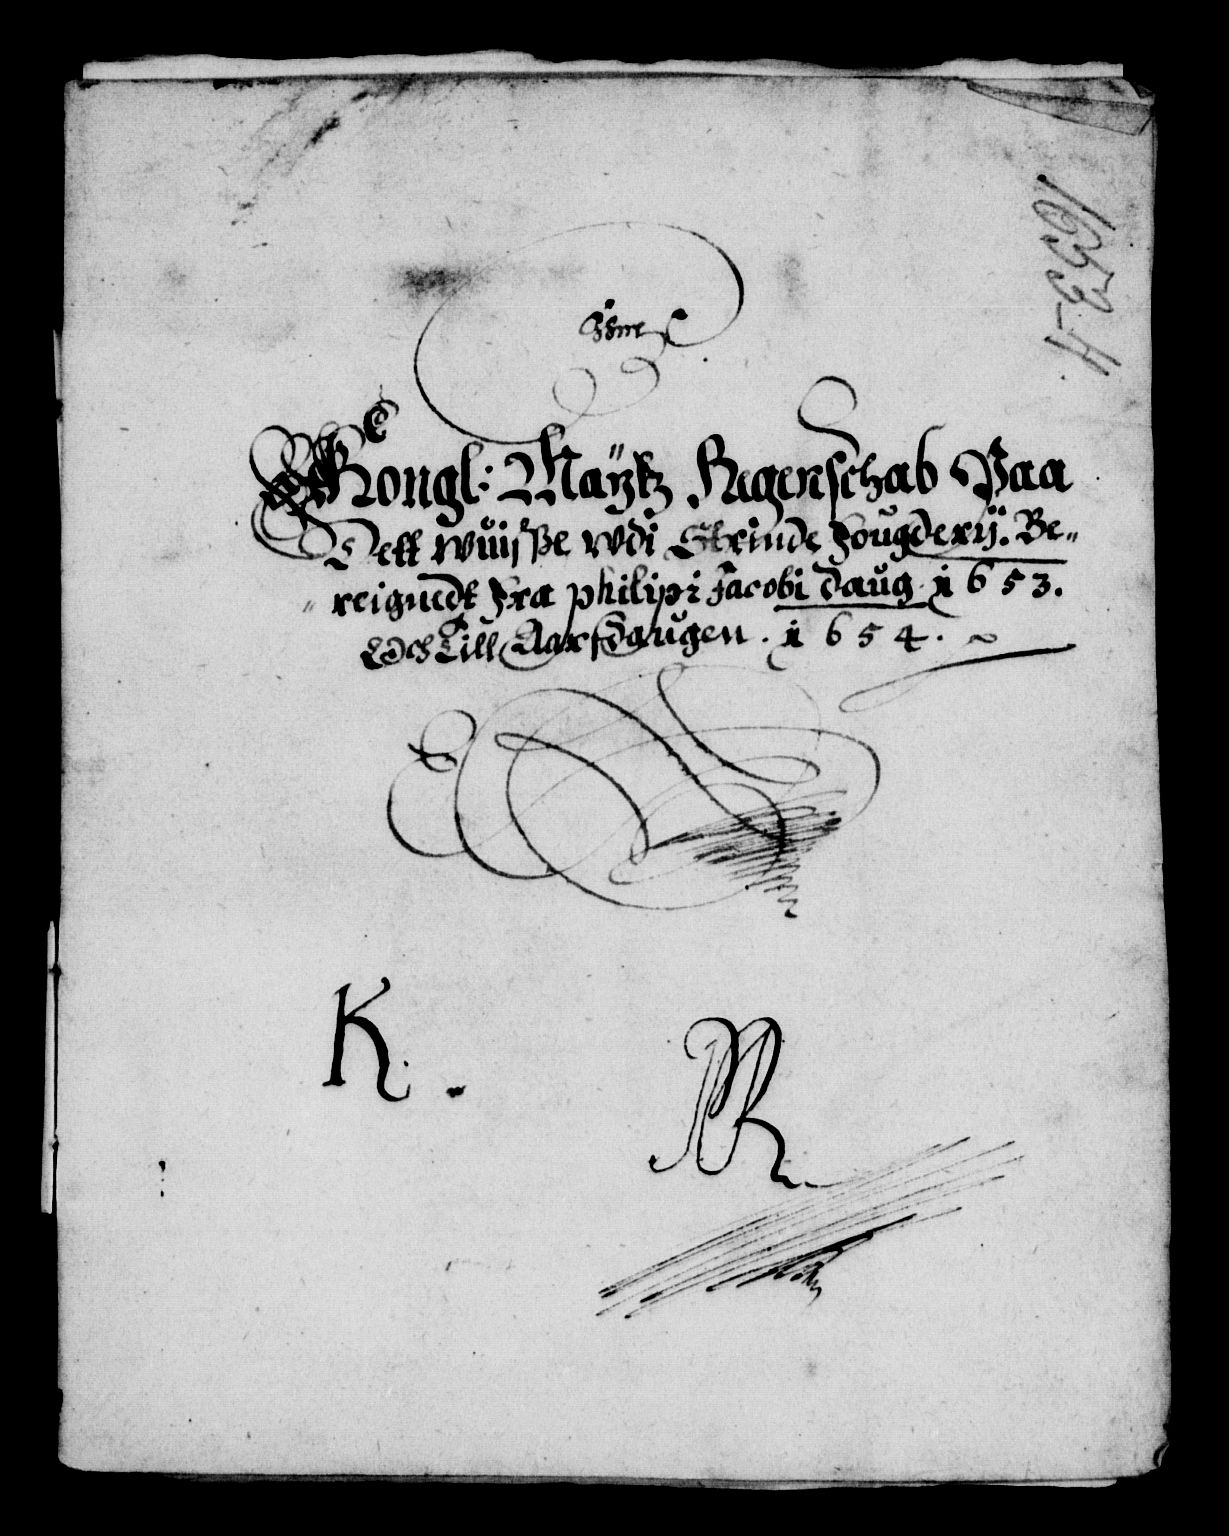 1653-4
Kongl: Maÿtz Regenschab Paa
Dett wuiſße wdi Strinde Fougderij. Be-
reignedt Fra philippi Jacobi daug 1653.
Och Till Aarſdaugen. 1654.
K.